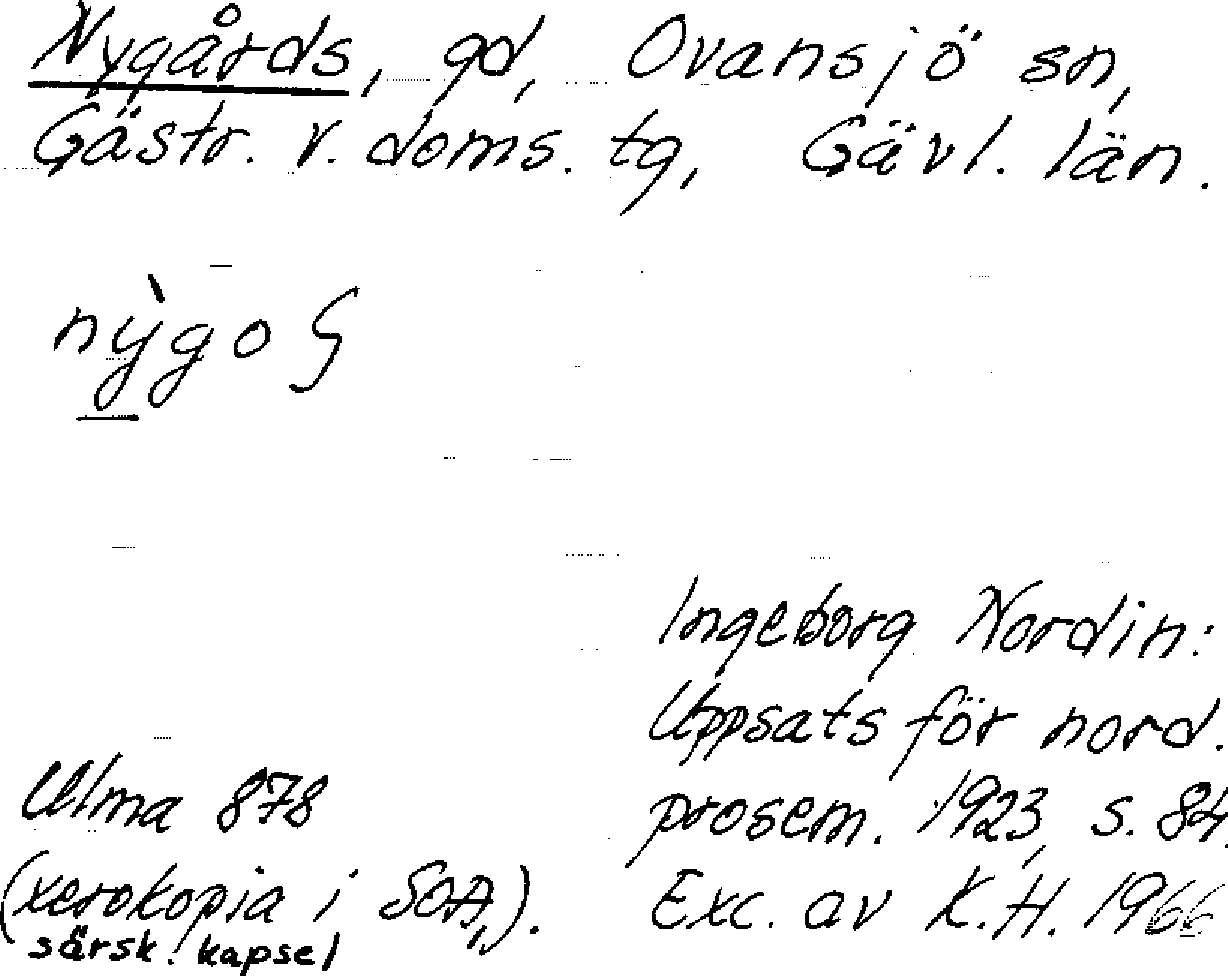 Nygårds, gd, Ovansjö sn,
Gästr. v. doms. tg, Gävl. län.
nỳgoʂ
Ingeborg Nordin:
Uppsats för nord.
prosem. 1923, s. 84.
Exc. av K.H. 1966
Ulma 878
(xerokopia i SOA,).
särsk. kapsel